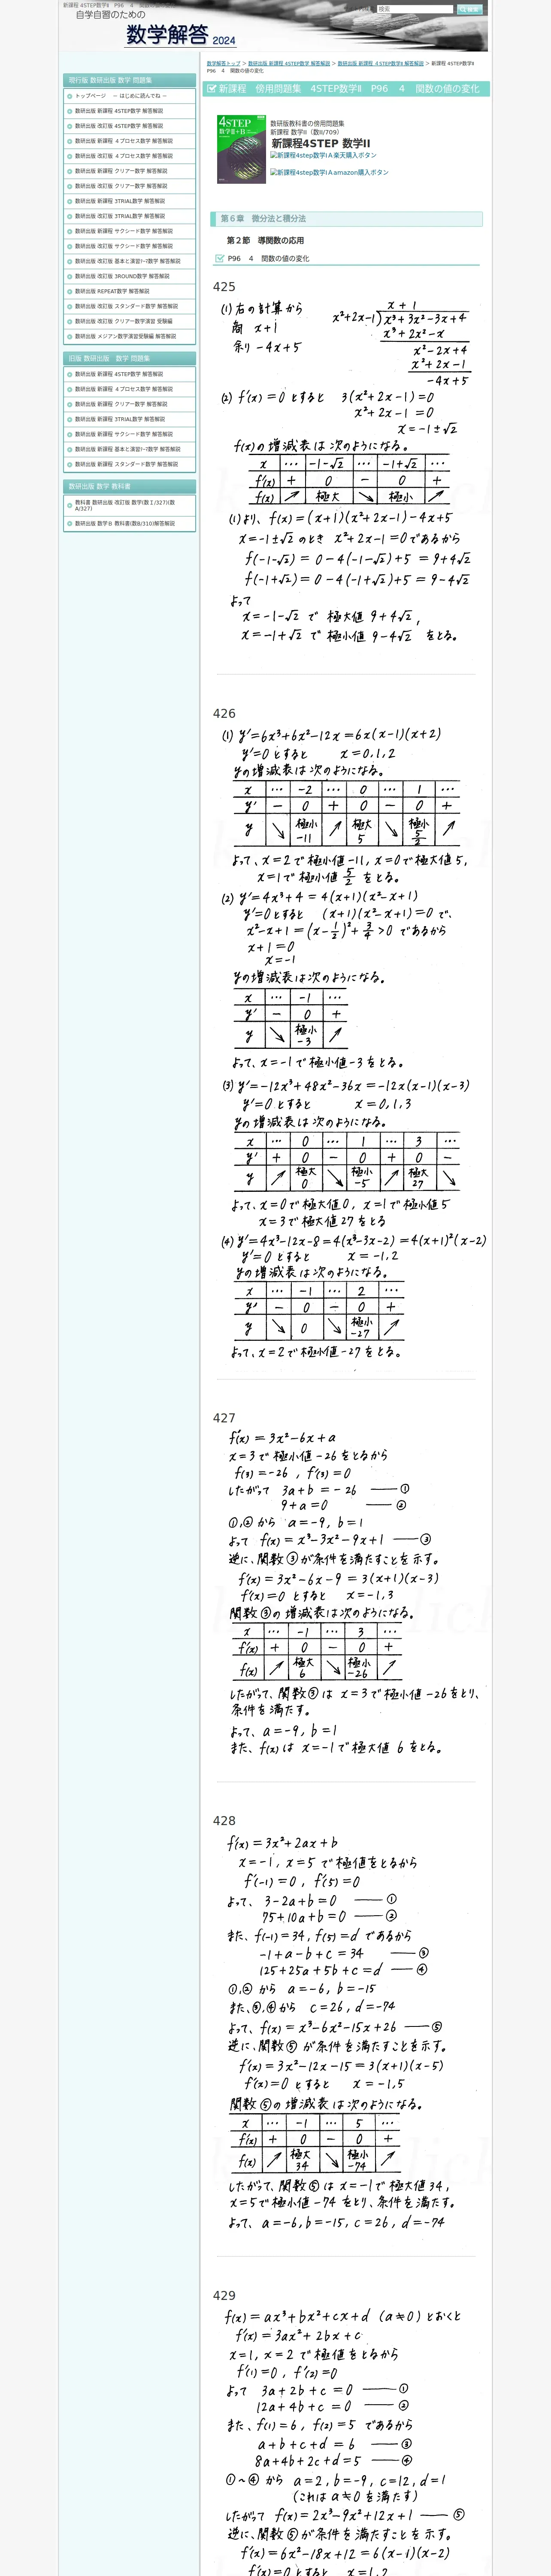 新課程 4STEP数学Ⅱ P96 4 関数の値の変化
自学自習のための
数学解答 2024
検索
検索
数学解答トップ > 数研出版 新課程 4STEP数学 解答解説 > 数研出版 新課程 4STEP数学Ⅱ 解答解説 > 新課程 4STEP数学Ⅱ
P96 4 関数の値の変化
現行版 数研出版 数学 問題集
トップページ － はじめに読んでね －
数研出版 新課程 4STEP数学 解答解説
数研出版 改訂版 4STEP数学 解答解説
数研出版 新課程 4プロセス数学 解答解説
数研出版 改訂版 4プロセス数学 解答解説
数研出版 新課程 クリアー数学 解答解説
数研出版 改訂版 クリアー数学 解答解説
数研出版 新課程 3TRIAL数学 解答解説
数研出版 改訂版 3TRIAL数学 解答解説
数研出版 新課程 サクシード数学 解答解説
数研出版 改訂版 サクシード数学 解答解説
数研出版 改訂版 基本と演習ﾃｰﾏ数学 解答解説
数研出版 改訂版 3ROUND数学 解答解説
数研出版 REPEAT数学 解答解説
数研出版 改訂版 スタンダード数学 解答解説
数研出版 改訂版 クリアー数学演習 受験編
数研出版 メジアン数学演習受験編 解答解説
旧版 数研出版 数学 問題集
数研出版 新課程 4STEP数学 解答解説
数研出版 新課程 4プロセス数学 解答解説
数研出版 新課程 クリアー数学 解答解説
数研出版 新課程 3TRIAL数学 解答解説
数研出版 新課程 サクシード数学 解答解説
数研出版 新課程 基本と演習ﾃｰﾏ数学 解答解説
数研出版 新課程 スタンダード数学 解答解説
数研出版 数学 教科書
教科書 数研出版 改訂版 数学I(数Ⅰ/327)(数
A/327)
数研出版 数学Ｂ 教科書(数B/310)解答解説
新課程 傍用問題集 4STEP数学Ⅱ P96 4 関数の値の変化
4STEP
数学Ⅱ+B
数研出版教科書の傍用問題集
新課程 数学Ⅱ（数Ⅱ/709）
新課程4STEP 数学II
新課程4step数学I A楽天購入ボタン
新課程4step数学I Aamazon購入ボタン
第６章 微分法と積分法
第２節 導関数の応用
P96 4 関数の値の変化
425
(1) 右の計算から
商 x+1
余り -4x+5
x+1
x²+2x-1)x³+3x²-3x+4
x³+2x²-x
x²-2x+4
x²+2x-1
-4x+5
(2) f'(x)=0 とすると 3(x²+2x-1)=0
x²+2x-1=0
x=-1±√2
f(x)の増減表は次のようになる。
x … -1-√2 … -1+√2 …
f'(x) + 0 - 0 +
f(x) ↗ 極大 ↘ 極小 ↗
(1)より、f(x)=(x+1)(x²+2x-1)-4x+5
x=-1±√2 のとき x²+2x-1=0であるから
f(-1-√2)=0-4(-1-√2)+5=9+4√2
f(-1+√2)=0-4(-1+√2)+5=9-4√2
よって
x=-1-√2 で 極大値 9+4√2,
x=-1+√2 で 極小値 9-4√2 をとる。
426
(1) y'=6x³+6x²-12x=6x(x-1)(x+2)
y'=0とすると x=0,1,2
yの増減表は次のようになる。
x … -2 … 0 … 1 …
y' - 0 + 0 - 0 +
y ↘ 極小 -11 ↗ 極大 5 ↘ 極小 5/2 ↗
よって、x=2で極小値-11, x=0で極大値5,
x=1で極小値 5/2 をとる。
(2) y'=4x³+4=4(x+1)(x²-x+1)
y'=0とすると (x+1)(x²-x+1)=0で、
x²-x+1=(x-1/2)²+3/4>0 であるから
x+1=0
x=-1
yの増減表は次のようになる。
x … -1 …
y' - 0 +
y ↘ 極小 -3 ↗
よって、x=-1で極小値-3をとる。
(3) y'=-12x³+48x²-36x=-12x(x-1)(x-3)
y'=0とすると x=0,1,3
yの増減表は次のようになる。
x … 0 … 1 … 3 …
y' + 0 - 0 + 0 -
y ↗ 極大 0 ↘ 極小 -5 ↗ 極大 27 ↘
よって、x=0で極大値0, x=1で極小値5
x=3で極大値27をとる
(4) y'=4x³-12x-8=4(x³-3x-2)=4(x+1)²(x-2)
y'=0とすると x=-1,2
yの増減表は次のようになる。
x … -1 … 2 …
y' - 0 - 0 +
y ↘ 0 ↘ 極小 -27 ↗
よって、x=2で極小値-27をとる。
427
f'(x)=3x²-6x+a
x=3で極小値-26をとるから
f(3)=-26, f'(3)=0
したがって 3a+b=-26 ――①
9+a=0 ――②
①,②から a=-9, b=1
よって f(x)=x³-3x²-9x+1 ――③
逆に、関数③が条件を満たすことを示す。
f'(x)=3x²-6x-9=3(x+1)(x-3)
f'(x)=0 とすると x=-1,3
関数③の増減表は次のようになる。
x … -1 … 3 …
f'(x) + 0 - 0 +
f(x) ↗ 極大 6 ↘ 極小 -26 ↗
したがって、関数③は x=3で極小値-26をとり、
条件を満たす。
よって、a=-9, b=1
また、f(x)は x=-1で極大値 6 をとる。
428
f'(x)=3x²+2ax+b
x=-1, x=5 で極値をとるから
f'(-1)=0, f'(5)=0
よって、3-2a+b=0 ――①
75+10a+b=0 ――②
また、f(-1)=34, f(5)=d であるから
-1+a-b+c=34 ――③
125+25a+5b+c=d ――④
①,②から a=-6, b=-15
また、③,④から c=26, d=-74
よって、f(x)=x³-6x²-15x+26 ――⑤
逆に、関数⑤が条件を満たすことを示す。
f'(x)=3x²-12x-15=3(x+1)(x-5)
f'(x)=0 とすると x=-1,5
関数⑤の増減表は次のようになる。
x … -1 … 5 …
f'(x) + 0 - 0 +
f(x) ↗ 極大 34 ↘ 極小 -74 ↗
したがって、関数⑤は x=-1で極大値34,
x=5で極小値-74をとり、条件を満たす。
よって、a=-6, b=-15, c=26, d=-74
429
f(x)=ax³+bx²+cx+d (a≠0)とおくと
f'(x)=3ax²+2bx+c
x=1, x=2 で極値をとるから
f'(1)=0, f'(2)=0
よって 3a+2b+c=0 ――①
12a+4b+c=0 ――②
また、f(1)=6, f(2)=5 であるから
a+b+c+d=6 ――③
8a+4b+2c+d=5 ――④
①～④から a=2, b=-9, c=12, d=1
(これは a≠0を満たす)
したがって f(x)=2x³-9x²+12x+1 ――⑤
逆に、関数⑤が条件を満たすことを示す。
f'(x)=6x²-18x+12=6(x-1)(x-2)
f'(x)=0とすると x=1,2